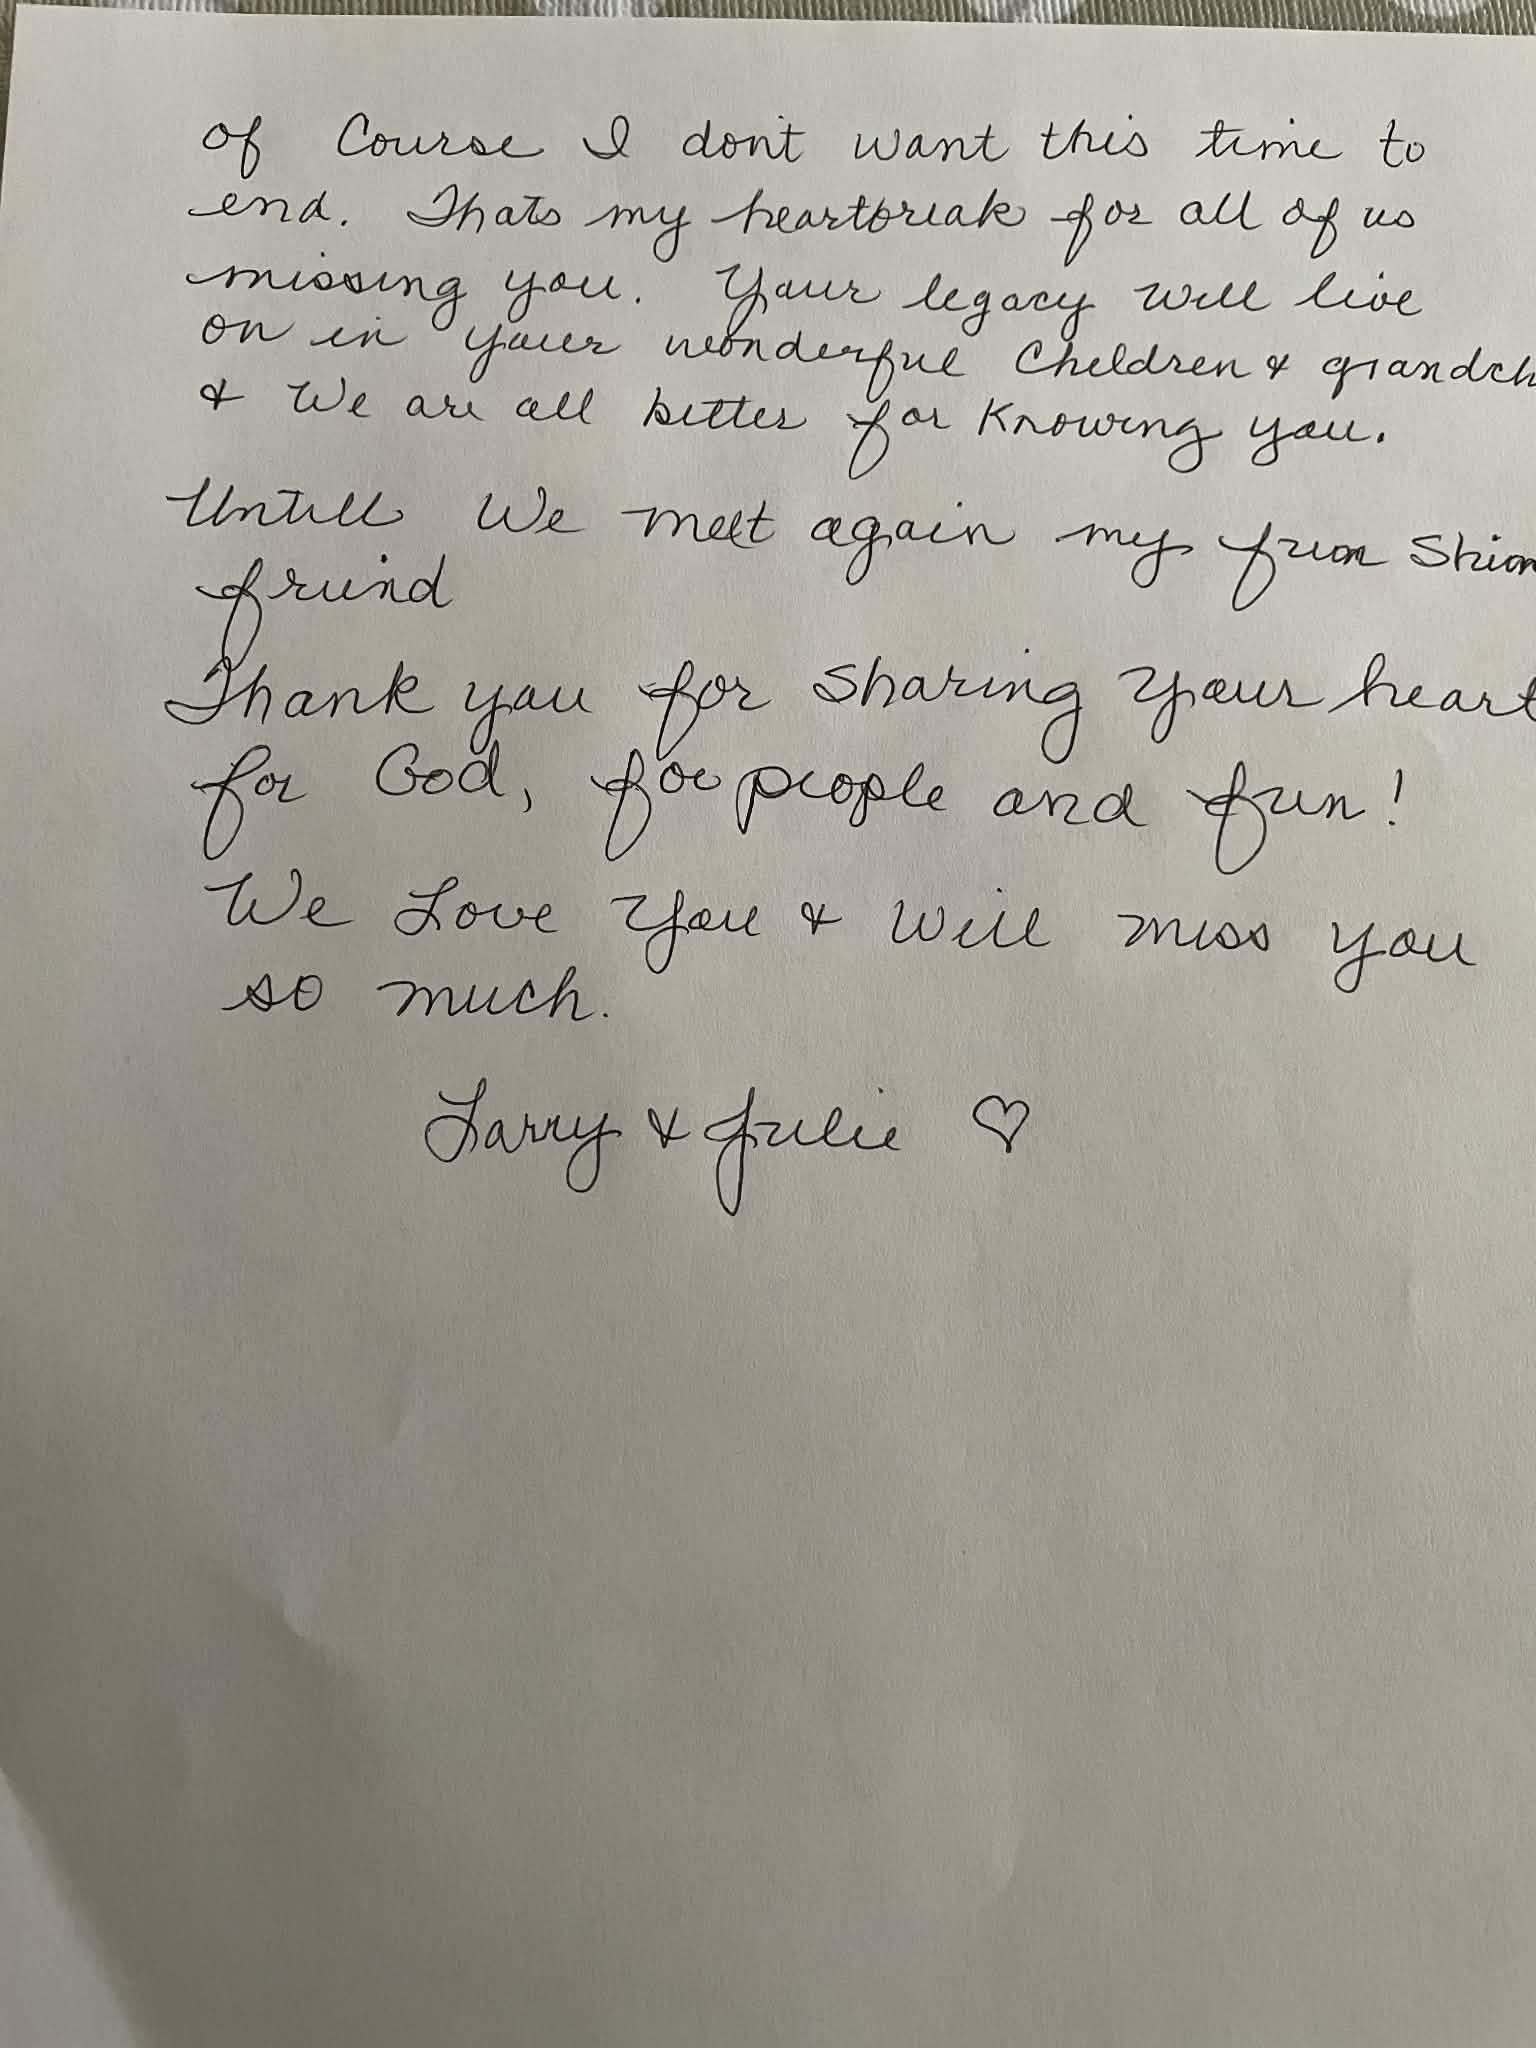 of Course I don't want this time to
end. Thats my heartbreak for all of us
missing you. Your legacy will live
on in your wonderful Children & grandch
& We are all better for Knowing you.
Untill We meet again my fun
friend
Thank you for sharing your heart
for God, for people and fun!
We Love You & Will miss you
so much.
Larry & Julie ♡